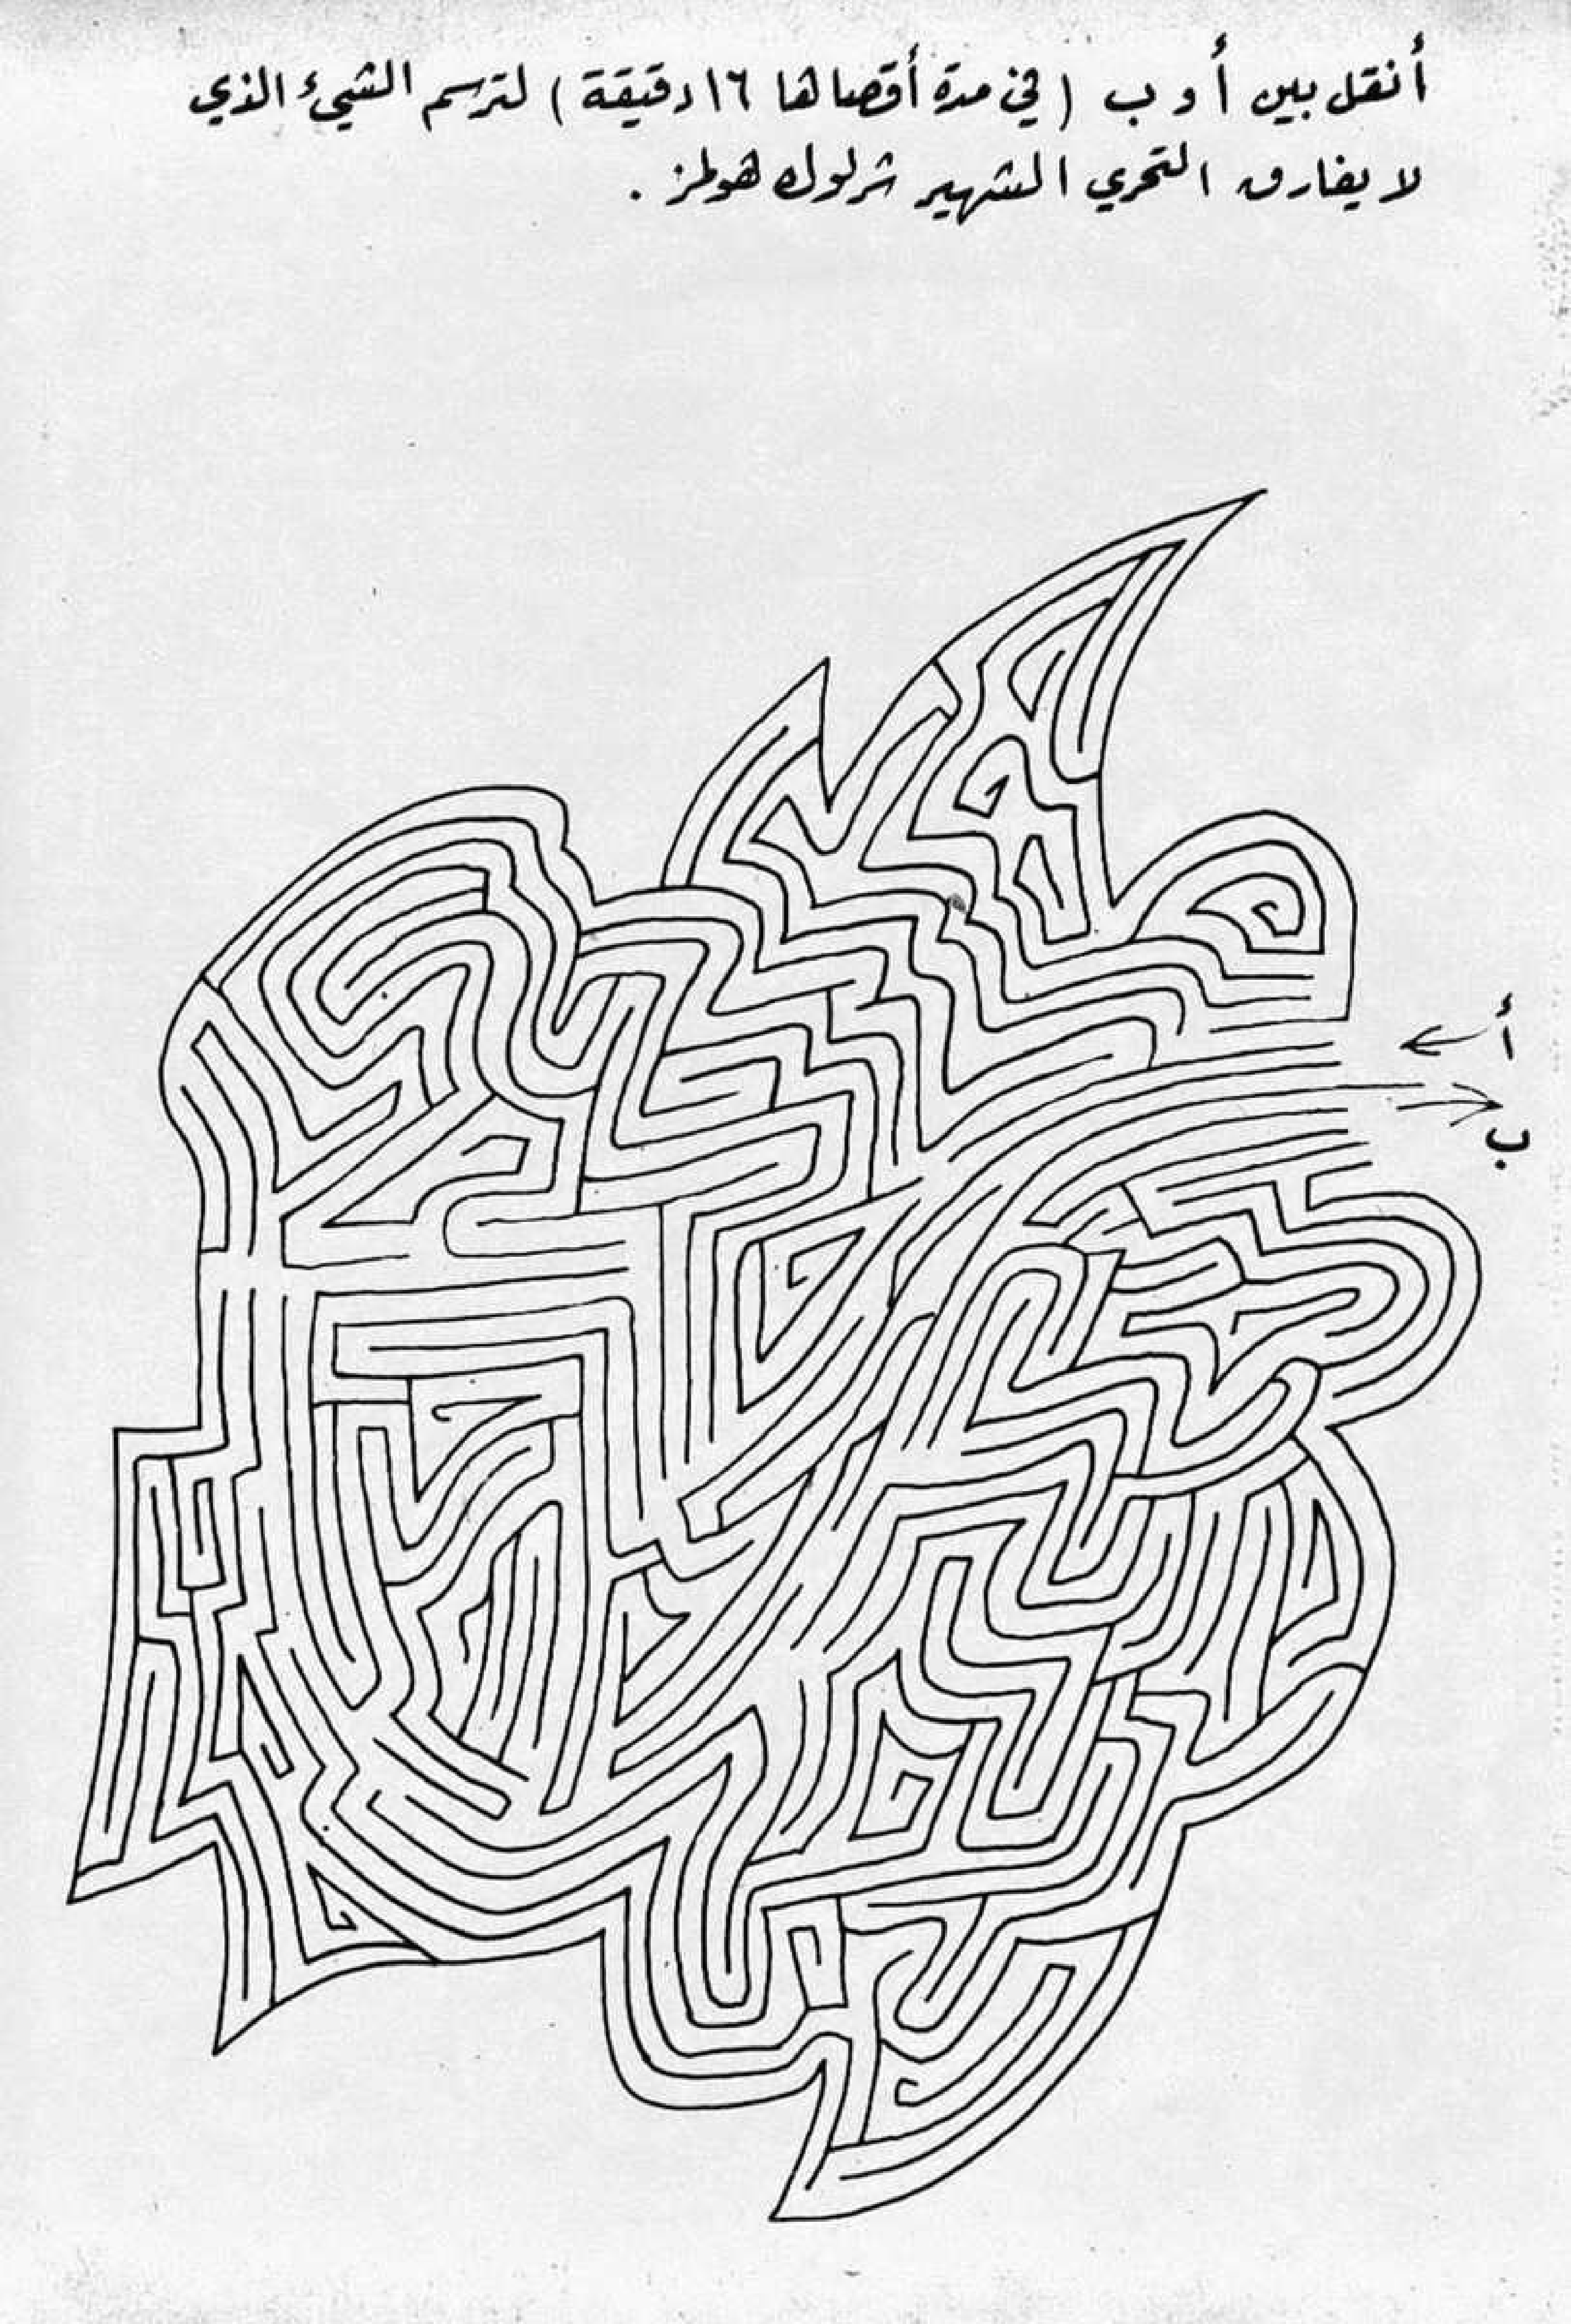 أنقل بين أ و ب (في مدة أقصاها ١٦ دقيقة) لترسم الشيء الذي
لا يفارق التحري الشهير شرلوك هولمز.
أ
ب